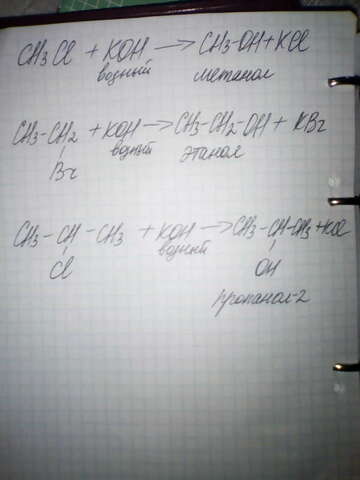 CH3Cl + KOH → CH3-OH + KCl
водный метанол
CH3-CH2 + KOH → CH3-CH2-OH + KBr
Br водный этанол
CH3-CH-CH3 + KOH → CH3-CH-CH3 + KCl
Cl водный OH
пропанол-2